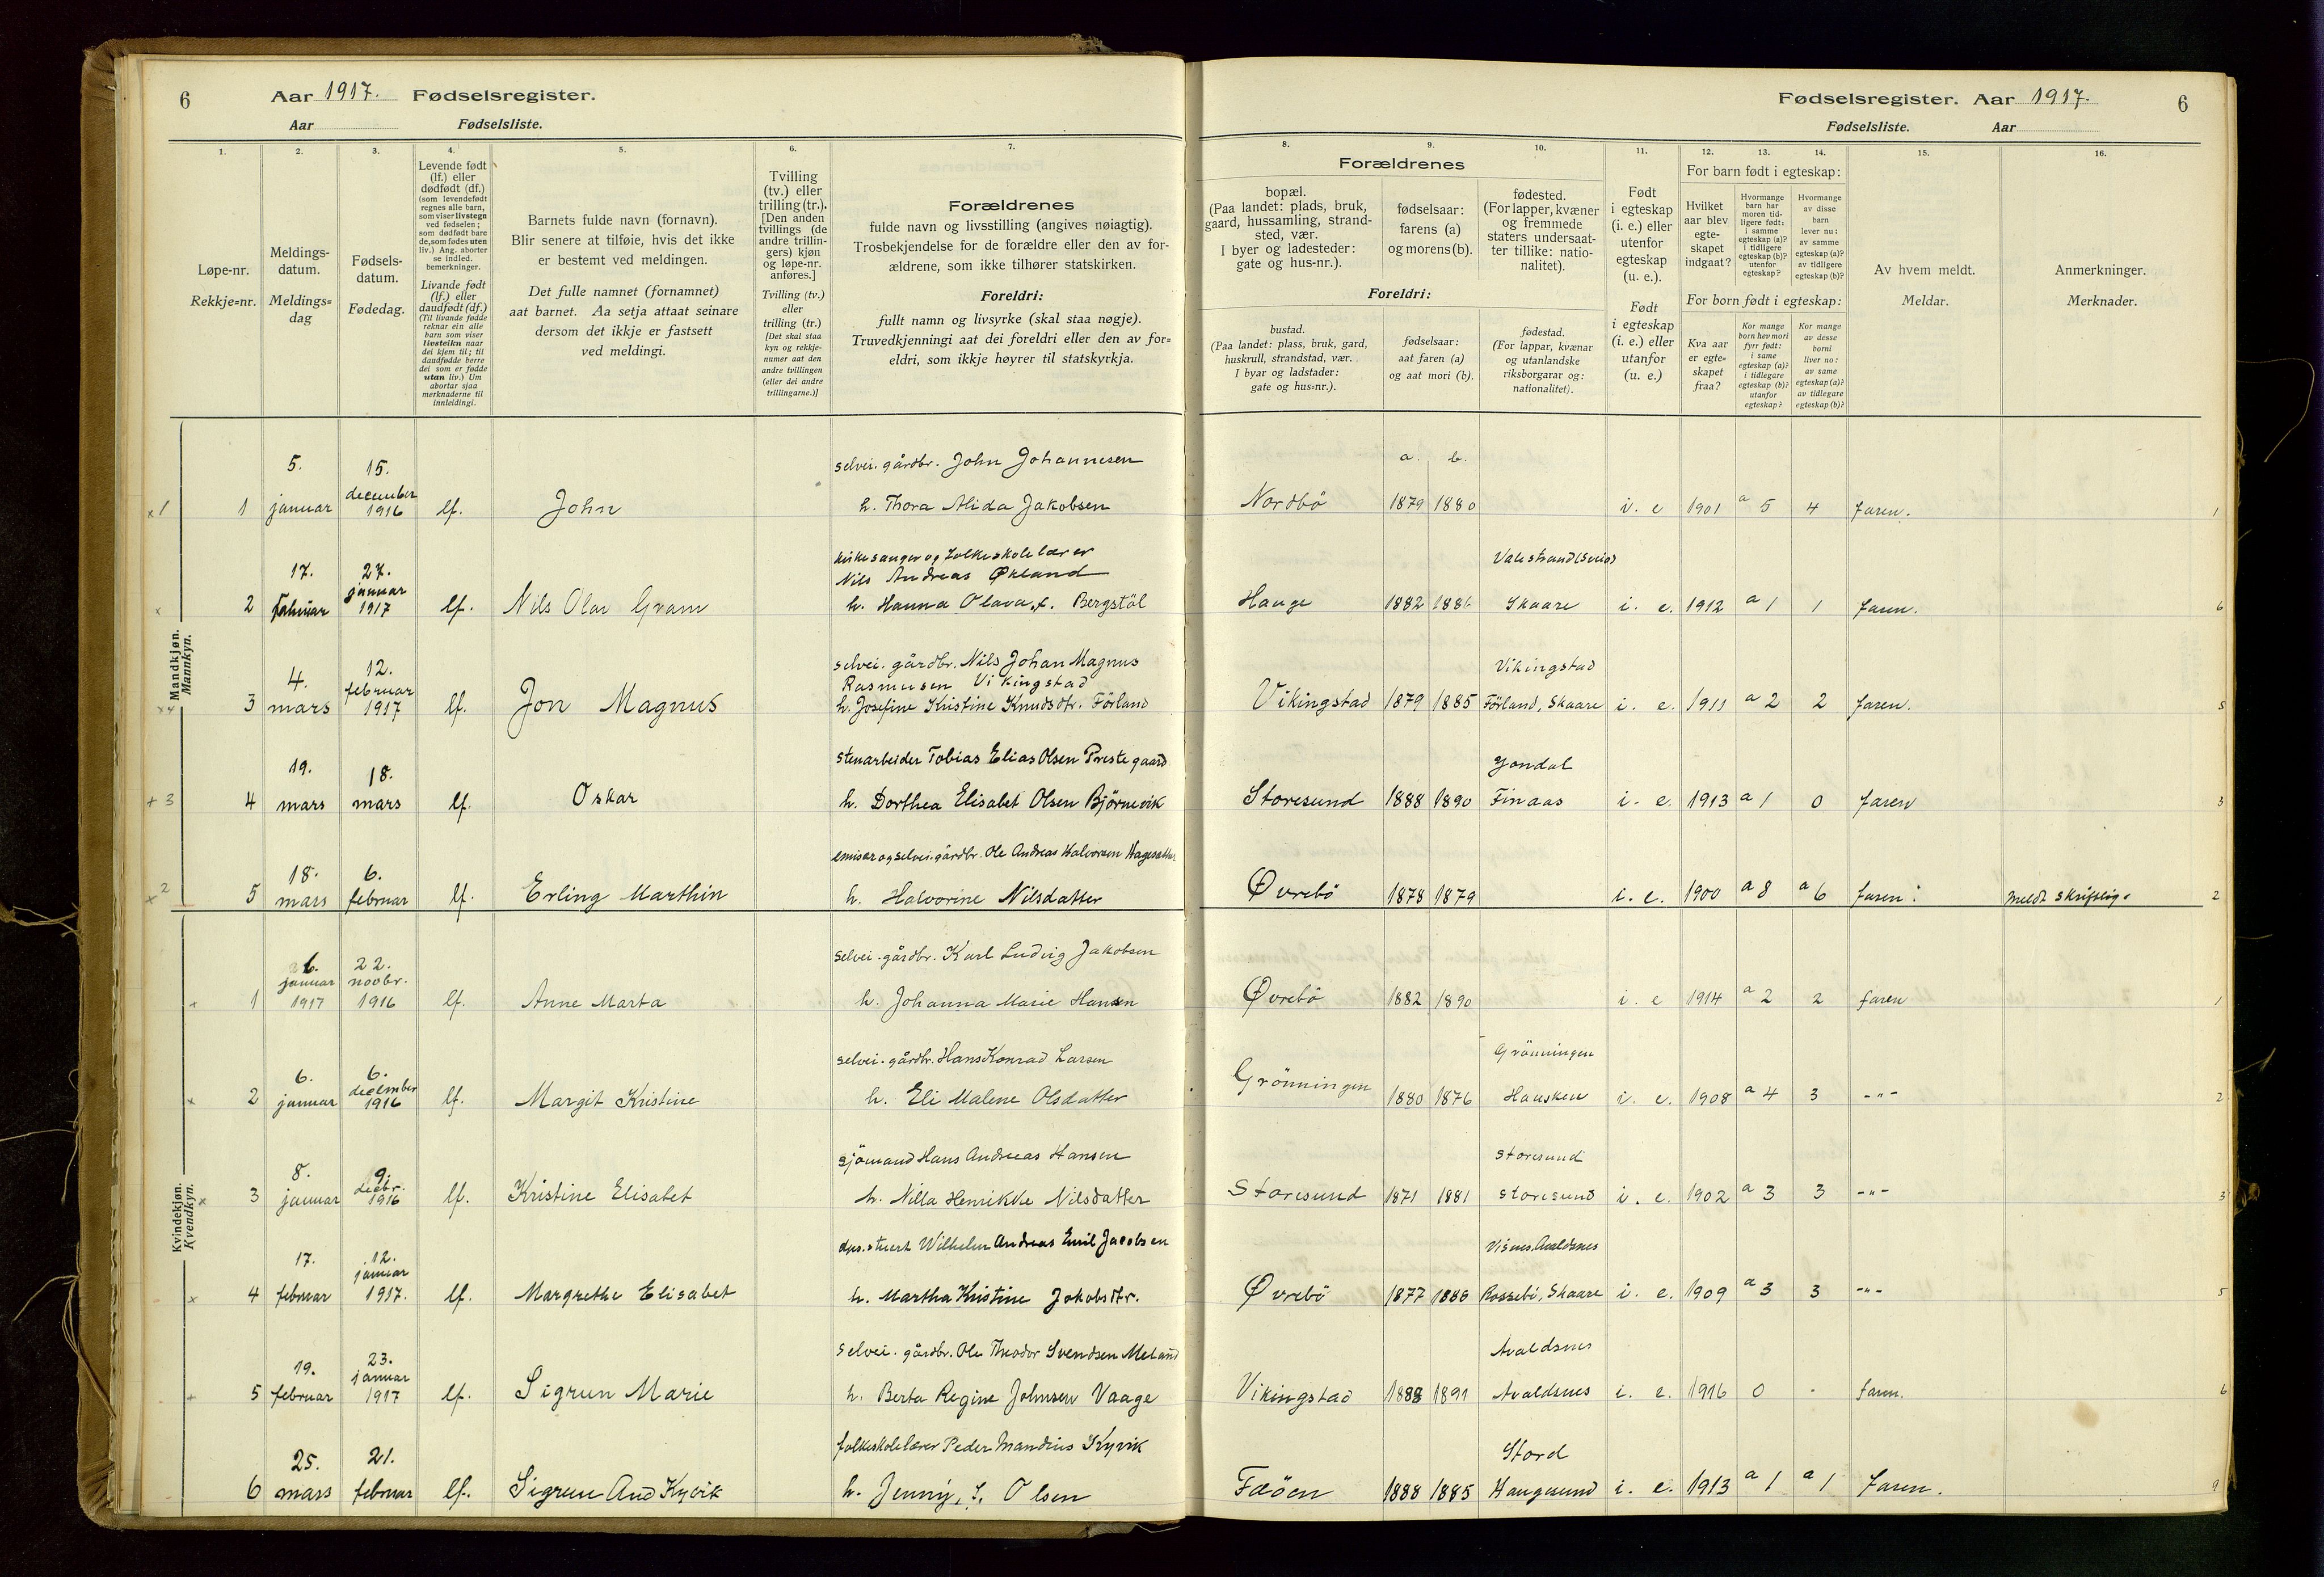 6 Aar 1917. Fødselsregister.
Aar Fødselsliste.
Fødselsregister. Aar 1917. 6
Fødselsliste. Aar
1. 2. 3. 4. 5. 6. 7.
Løpe-nr.
Rekkje=nr.
Meldings-
datum.
Meldings=
dag
Fødsels-
datum.
Fødedag.
Levende født
(lf.) eller
dødfødt (df.)
(som levendefødt
regnes alle barn,
som viser livstegn
ved fødselen;
som dødfødt bare
de, som fødes uten
liv.) Ang. aborter
se indled.
bemerkninger.
Livande født
(lf.) eller
daudfødt (df.)
(Til livande fødde
reknar ein alle
barn som viser
livsteikn naar
dei kjem til; til
daudfødde berre
dei som er fødde
utan liv.) Um
abortar sjaa
merknaderne til
innleidingi.
Barnets fulde navn (fornavn).
Blir senere at tilføie, hvis det ikke
er bestemt ved meldingen.
Det fulle namnet (fornamnet)
aat barnet. Aa setja attaat seinare
dersom det ikkje er fastsett
ved meldingi.
Tvilling
(tv.) eller
trilling (tr.).
[Den anden
tvillings (de
andre trillin-
gers) kjøn
og løpe-nr.
anføres.]
Tvilling (tv.)
eller
trilling (tr.)
[Det skal staa
kyn og rekkje-
numer aat den
andre tvillingen
(eller dei andre
trillingarne.)]
Forældrenes
fulde navn og livsstilling (angives nøiagtig).
Trosbekjendelse for de forældre eller den av for-
ældrene, som ikke tilhører statskirken.
Foreldri:
fullt namn og livsyrke (skal staa nøgje).
Truvedkjenningi aat dei foreldri eller den av for=
eldri, som ikkje høyrer til statskyrkja.
8. 9. 10. 11. 12. 13. 14. 15. 16.
Forældrenes
bopæl.
(Paa landet: plads, bruk,
gaard, hussamling, strand-
sted, vær.
I byer og ladesteder:
gate og hus-nr.).
fødselsaar:
farens (a)
og morens (b).
fødested.
(For lapper, kvæner
og fremmede
staters undersaat-
ter tillike: natio-
nalitet).
Foreldri:
bustad.
(Paa landet: plass, bruk, gard,
huskrull, strandstad, vær.
I byar og ladstader:
gate og hus=nr.).
fødselsaar:
aat faren (a)
og aat mori (b).
fødestad.
(For lappar, kvænar
og utanlandske
riksborgarar og:
nationalitet).
Født
i egteskap
(i. e.) eller
utenfor
egteskap
(u. e.).
Født
i egteskap
(i. e.) eller
utanfor
(u. e.)
For barn født i egteskap:
Hvilket
aar blev
egte-
skapet
indgaat?
Hvormange
barn har
moren tid-
ligere født:
i samme
egteskap (a)?
i tidligere
egteskap (b)?
utenfor
egteskap?
Hvormange
av disse
barn
lever nu:
av samme
egteskap (a)?
av tidligere
egteskap (b)?
For born født i egteskap:
Kva aar
er egte=
skapet
fraa?
Kor mange
born hev mori
fyrr født:
i same
egteskap (a)?
i tidlegare
egteskap (b)?
utanfor
egteskap?
Kor mange
av desse
borni
liver no:
av same
egteskap (a)?
av tidlegare
egteskap (b)?
Av hvem meldt.
Meldar.
Anmerkninger.
Merknader.
Mandkjøn.
Mannkyn.
5. 15. selvei. gårdbr. John Johannesen a. b.
x1 1 januar december 1916 lf. John h. Thora Alida Jakobsen Nordbö 1879 1880 i. e 1901 a 5 4 faren. 1
17. 27. kirkesanger og folkeskolelærer
Nils Andreas Økland Valestrand (Sveio)
x 2 februar januar 1917 lf. Nils Olav Gram h. Hanna Olava, f. Bergstöl Hauge 1882 1886 Skaare i. e. 1912 a 1 1 faren. 6
4. 12. selvei. gårdbr. Nils Johan Magnus
Rasmusen Vikingstad Vikingstad
x4 3 mars februar 1917 lf. Jon Magnus h. Josefine Kristine Knudsdtr. Förland Vikingstad 1879 1885 Förland, Skaare i. e. 1911 a 2 2 faren. 5
19. 18. stenarbeider Tobias Elias Olsen Prestegaard Jondal
+3 4 mars mars lf. Oskar h. Dorthea Elisabet Olsen Björnevik Storesund 1888 1890 Finaas i. e. 1913 a 1 0 faren 3
18. 6. emisær og selvei. gårdbr. Ole Andreas Halvorsen
x2 5 mars februar lf. Erling Marthin h. Halvorine Nilsdatter Øvrebö 1878 1879 i. e. 1900 a 8 a 6 faren. meldt skriftlig. 2
Kvindekjøn.
Kvendkyn.
22. selvei. gårdbr. Karl Ludvig Jakobsen
+ 1 januar 1917 novbr. 1916 lf. Anne Marta h. Johanna Marie Hansen Øvrebö 1882 1890 i. e 1914 a 2 2 faren 1
6. 6. selvei. gårdbr. Hans Konrad Larsen Grönningen
x 2 januar december 1916 lf. Margit Kristine h. Eli Malene Olsdatter Grönningen 1880 1876 Hausken i. e. 1908 a 4 3 -"- 2
8. 9. sjömand Hans Andreas Hansen Storesund
x 3 januar decbr. 1916 lf. Kristine Elisabet h. Nilla Henrikke Nilsdatter Storesund 1871 1881 Storesund i. e. 1902 a 3 3 -"- 3
17. 12. dps. stuert Wilhelm Andreas Emil Jacobsen Visnes, Avaldsnes
x 4 februar januar 1917. lf. Margrethe Elisabet h. Martha Kristine Jakobsdtr. Øvrebö 1877 1886 Rossebö, Skaare i. e. 1909 a 3 3 -"- 5
19. 23. selvei. gårdbr. Ole Theodor Svendsen Meland Avaldsnes
+ 5 februar januar 1917 lf. Sigrun Marie h. Berta Regine Johnsen Vaage Vikingstad 1888 1891 Avaldsnes i. e. 1916 0 - faren. 6
25. 21. folkeskolelærer Peder Mandius Kyvik Stord
6 mars februar lf. Sigrun Aud Kyvik h. Jenny, f. Olsen Feöen 1888 1885 Haugesund i. e. 1913 a 1 a 1 faren. 9